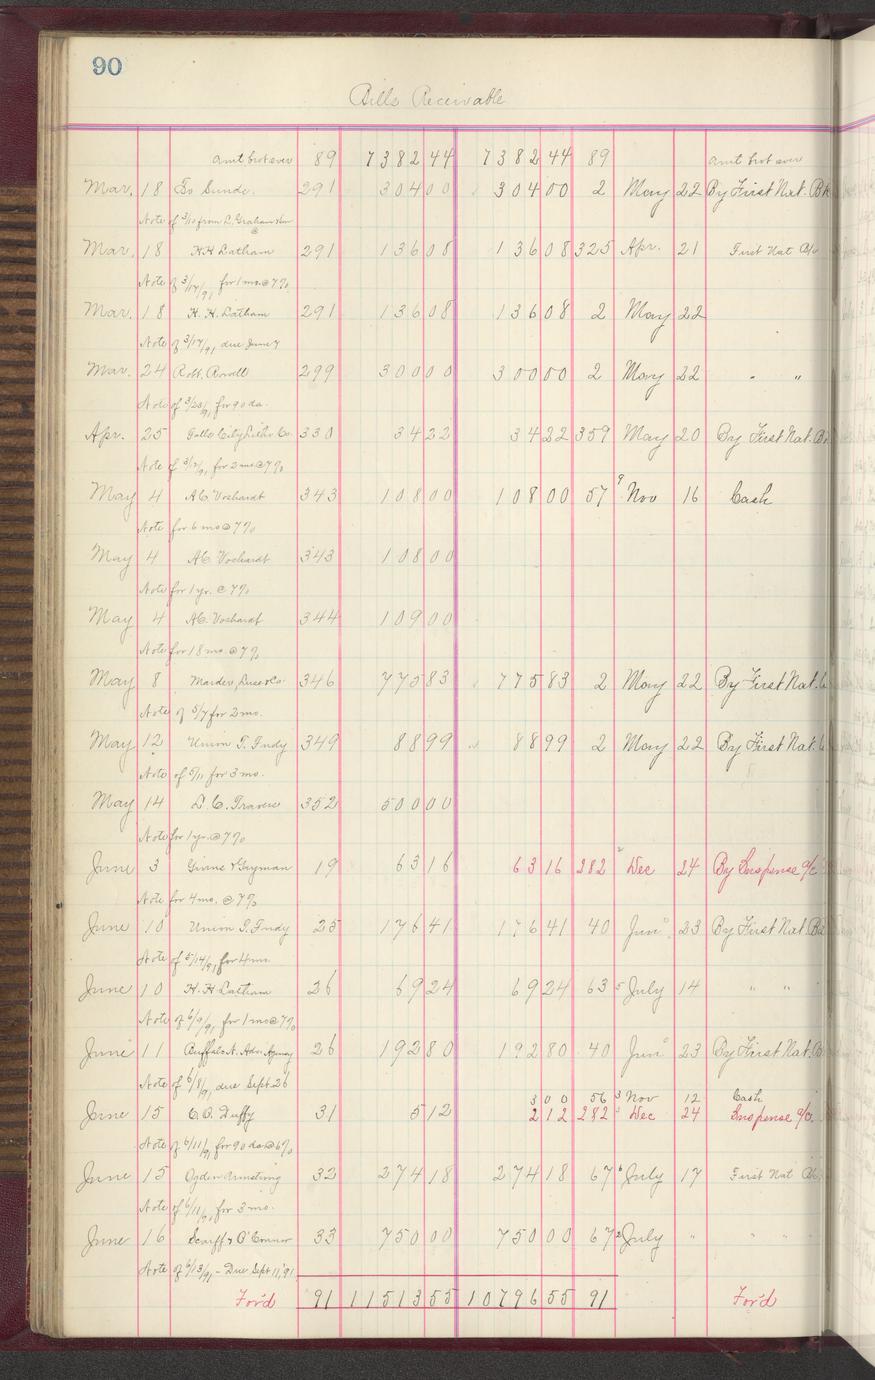 90
Bills Receivable
amt brot over 89 7382 44 7382 44 89 amt brot over
Mar. 18 To Sunds. 291 304 00 304 00 2 May 22 By First Nat. Bk
Note of 3/10 from L. Graham
Mar. 18 H.H. Latham 291 136 08 136 08 325 Apr. 21 First Nat Bk
Note of 3/17/91 for 1 mo. @ 7%
Mar. 18 H.H. Latham 291 136 08 136 08 2 May 22
Note of 3/17/91 due June 7
Mar. 24 Robt. 299 300 00 300 00 2 May 22 " "
Note of 3/23/91 for 90 da.
Apr. 25 Galls City Litho Co. 330 34 22 34 22 359 May 20 By First Nat. Bk
Note of for 2 mo @ 7%
May 4 A.C. Voshardt 343 108 00 108 00 57 9 Nov 16 Cash
Note for 6 mo @ 7%
May 4 A.C. Voshardt 343 108 00
Note for 1 yr. @ 7%
May 4 A.C. Voshardt 344 109 00
Note for 18 mo. @ 7%
May 8 Marder, Luse & Co. 346 775 83 775 83 2 May 22 By First Nat.
Note of 5/7 for 2 mo.
May 12 Union T. Fndy 349 88 99 88 99 2 May 22 By First Nat.
Note of 5/11 for 3 mo.
May 14 L.C. Traverse 352 500 00
Note for 1 yr. @ 7%
June 3 & Gayman 19 63 16 63 16 282 2 Dec 24 By Suspense a/c
Note for 4 mo. @ 7%
June 10 Union T. Fndy 25 176 41 176 41 40 June 23 By First Nat. Bk
Note of 5/14/91 for 4 mo.
June 10 H.H. Latham 26 69 24 69 24 63 5 July 14 " "
Note of 6/9/91 for 1 mo @ 7%
June 11 Buffalo N. Adv. Agency 26 192 80 192 80 40 June 23 By First Nat. B
Note of 6/8/91 due Sept. 26
3 00 56 3 Nov 12 Cash
June 15 C.O. Duffy 31 5 12 2 12 282 3 Dec 24 Suspense a/c.
Note of 6/11/91 for 90 da @ 6%
June 15 Ogden Armstrong 32 274 18 274 18 67 6 July 17 First Nat Bk
Note of 6/11/91 for 3 mo.
June 16 Scarff & O'Connor 33 750 00 750 00 67 2 July " " " "
Note of 6/13/91 - Due Sept 11, '91
For'd 91 11513 55 10796 55 91 For'd